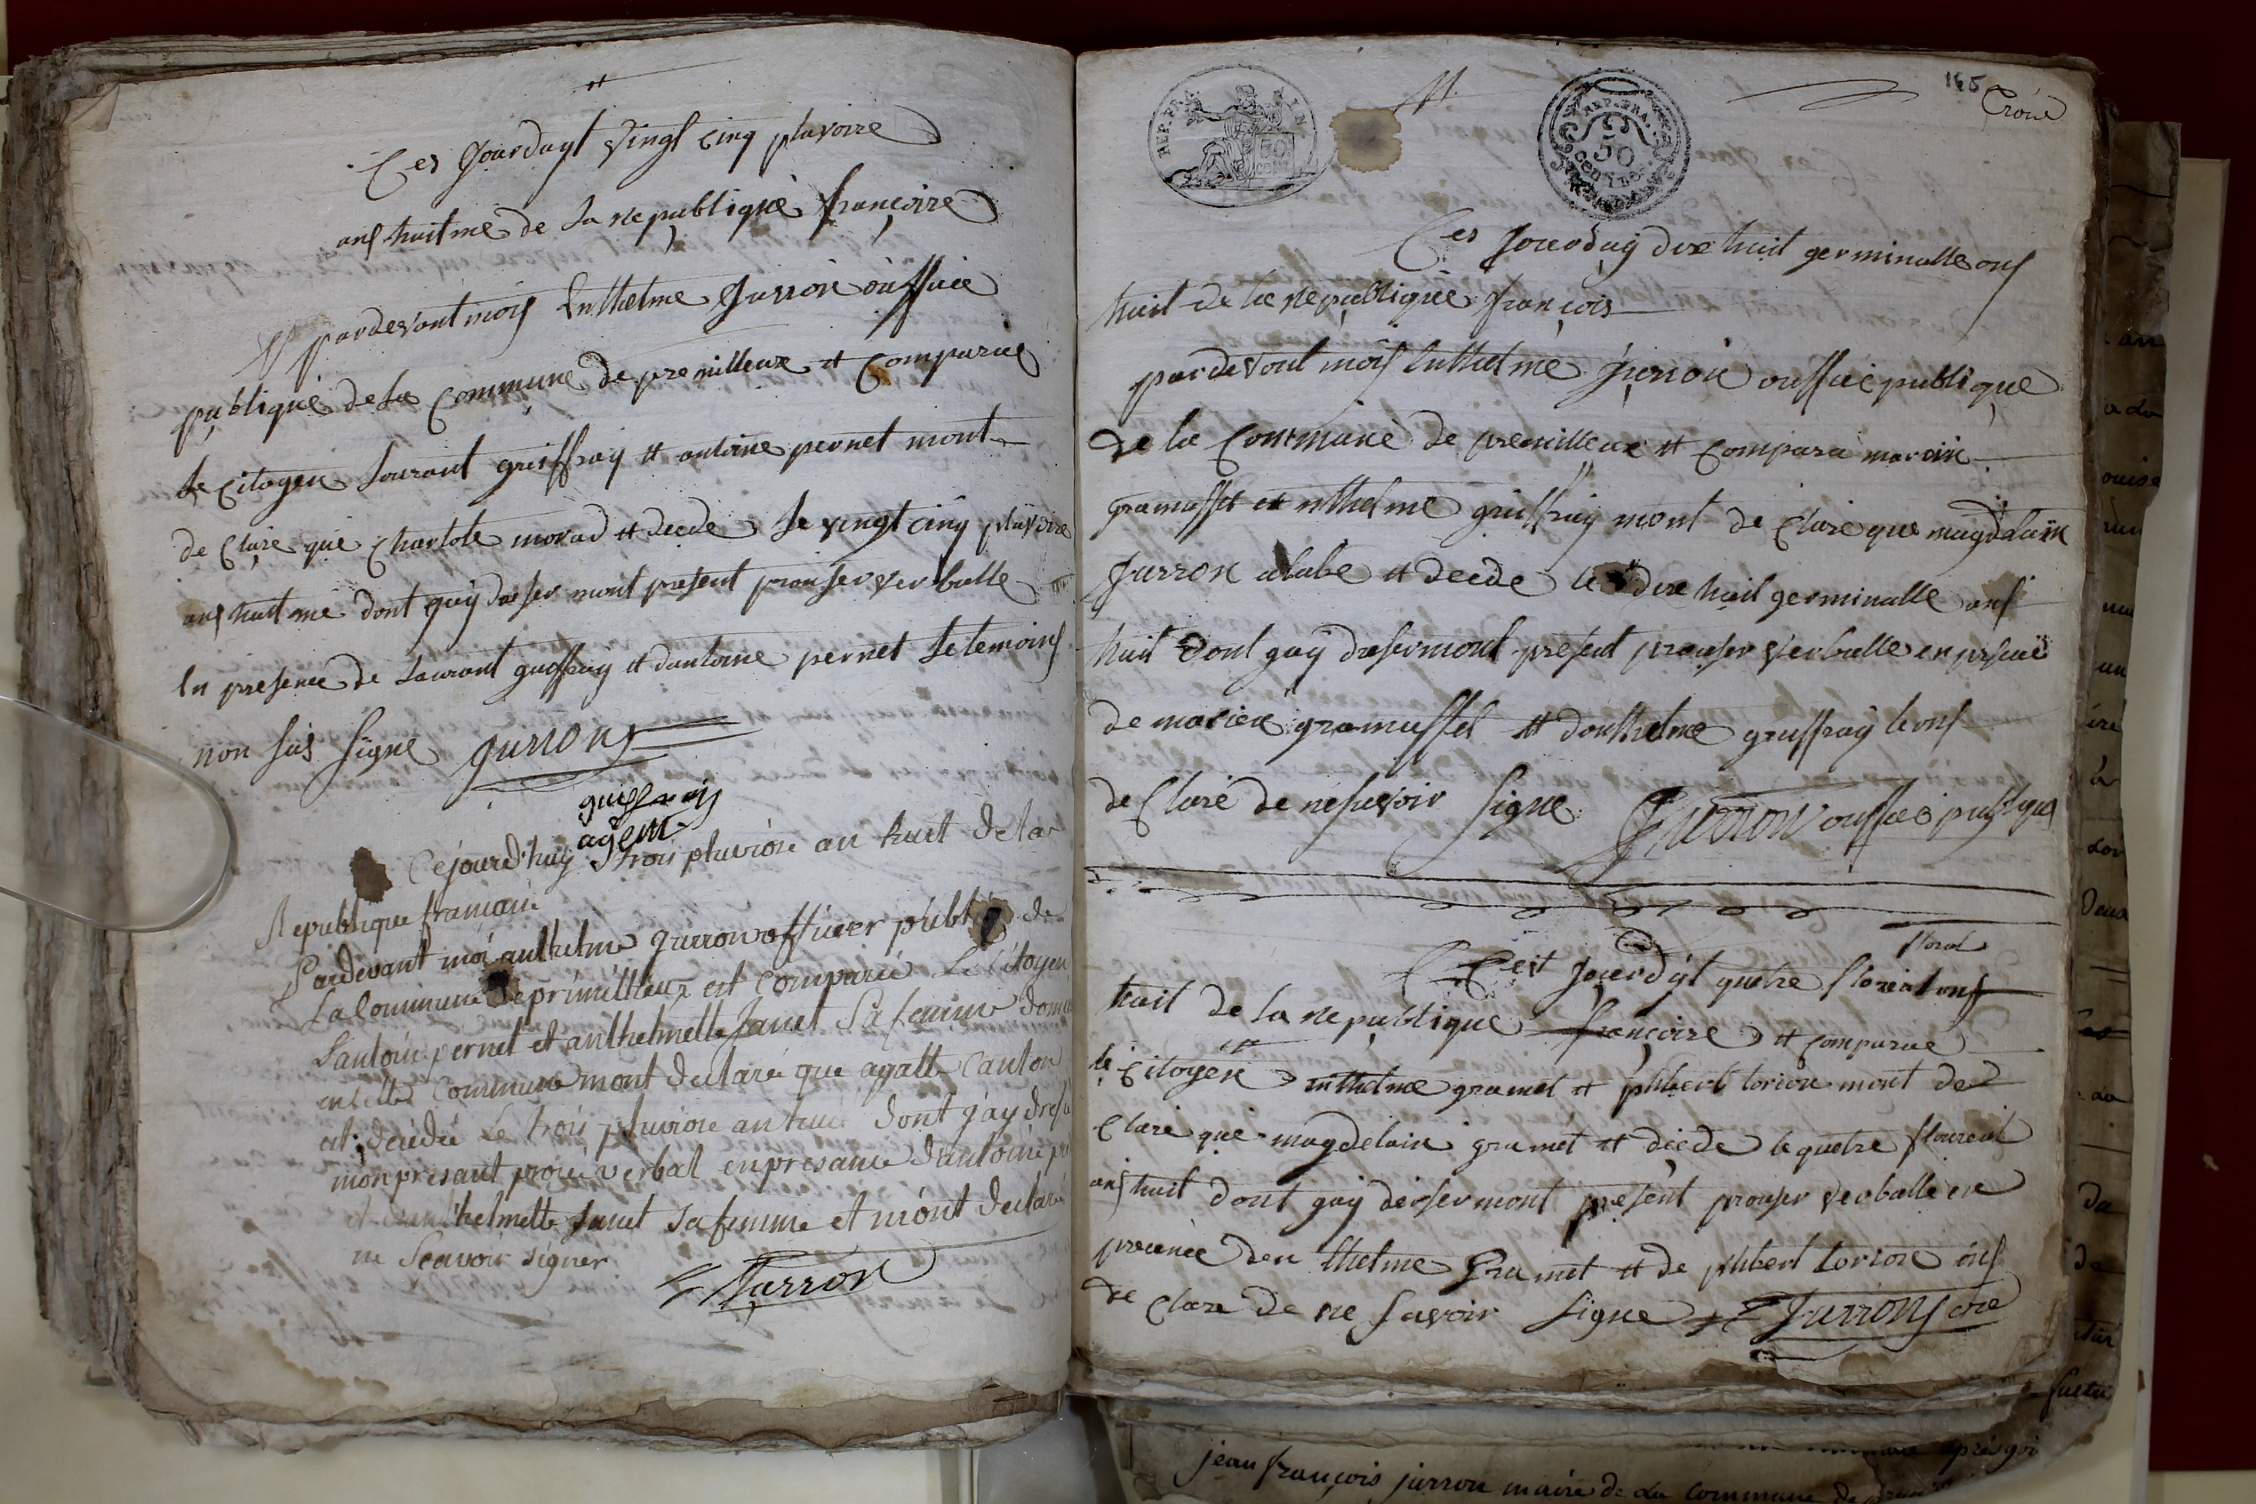 Ces Jourduyt vingt cinq pluvoire
ans huitme de la republique françoire
pardevant moij Enthelme Jurron ouffice
publique de la Commune de premilleux et Comparue
Le Citoyen Lourant guiffray et antoine pernet mont
de Clare que Charlote morad et decede Le vingt cinq pluvoire
ans huitme dont gaij dreser mont present prouser verballe
En presence de Laurant guiffray et dantoine pernet Le temoins
non sus signe Jurron
guiffray
agent
Cejourd'huy trois pluviose an huit de la
Republique francaise
Pardevant moi anthelme Jurron officier public de
La Commune de primillieux est comparu Le Citoyen
L'antoine pernet et anthelmette Janet Sa femme
en cette Commune mont declaré que agatte Canton
est décédé Le trois pluviose an huit dont j'ay dressé
mon presant procé verbal en presance d'antoine
et d'anthelmette Janet sa femme et m'ont declaré
ne Scavoir signer
Jurron
REP. FRA.
50
CENT
REP. FRA.
50
CENTIMES
165
Ces Jourduy dix huit germinalle ans
huit de la republique françois
pardevont moij Enthelme Jurron ouffice publique
de la Commune de premilleux et Compara
gramusset et enthelme guiffray mont de Clare que magdelain
Jurron et decede le dix huit germinalle ans
huit dont gaij dresermont present prouser verballe en
de gramusset et denthelme guiffray
de Clare de ne savoir signe Jurron ouffice publique
floreal
Cest jourduyt quatre floreal ans
huit de la republique françoire et comparue
le Citoyen enthelme gramet et phibert torion mont de
Clare que magdelain gramet et decede le quatre floureal
ans huit dont gaij dresermont present prouser verballe en
presence den thelme gramet et de phibert torion ons
de Clare de ne savoir signe Jurron
jean françois jurron maire de la commune de